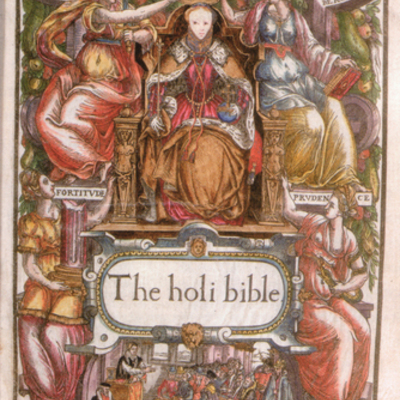 FORTITUDE
PRUDENCE
The holi bible